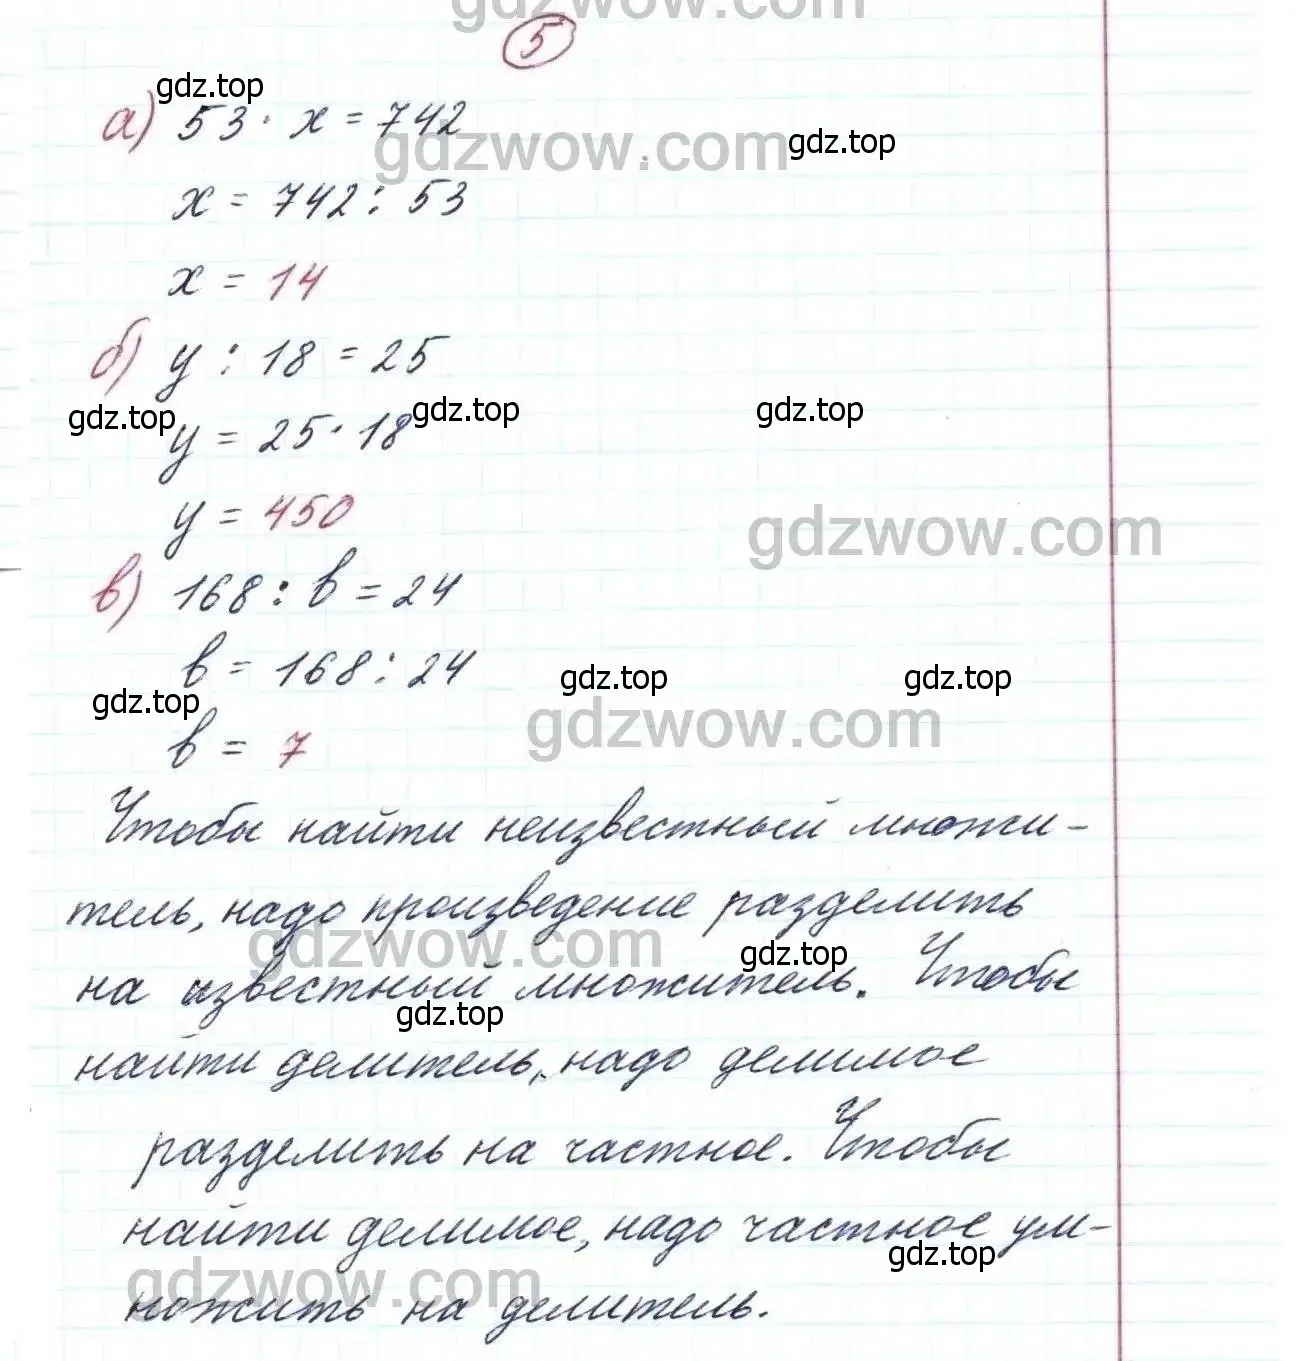 gdzwow.com
5
gdz.top
а) 53 · x = 742
gdzwow.com
gdz.top
x = 742 : 53
x = 14
б) y : 18 = 25
gdz.top
gdz.top
gdz.top
y = 25 · 18
y = 450
gdzwow.com
в) 168 : b = 24
b = 168 : 24
gdz.top
gdz.top
gdz.top
gdzwow.com
b = 7
Чтобы найти неизвестный множи-
тель, надо произведение разделить
gdzwow.com
gdz.top
на известный множитель. Чтобы
gdz.top
найти делитель, надо делимое
разделить на частное. Чтобы
найти делимое, надо частное ум-
gdz.top
gdzwow.com
ножить на делитель.